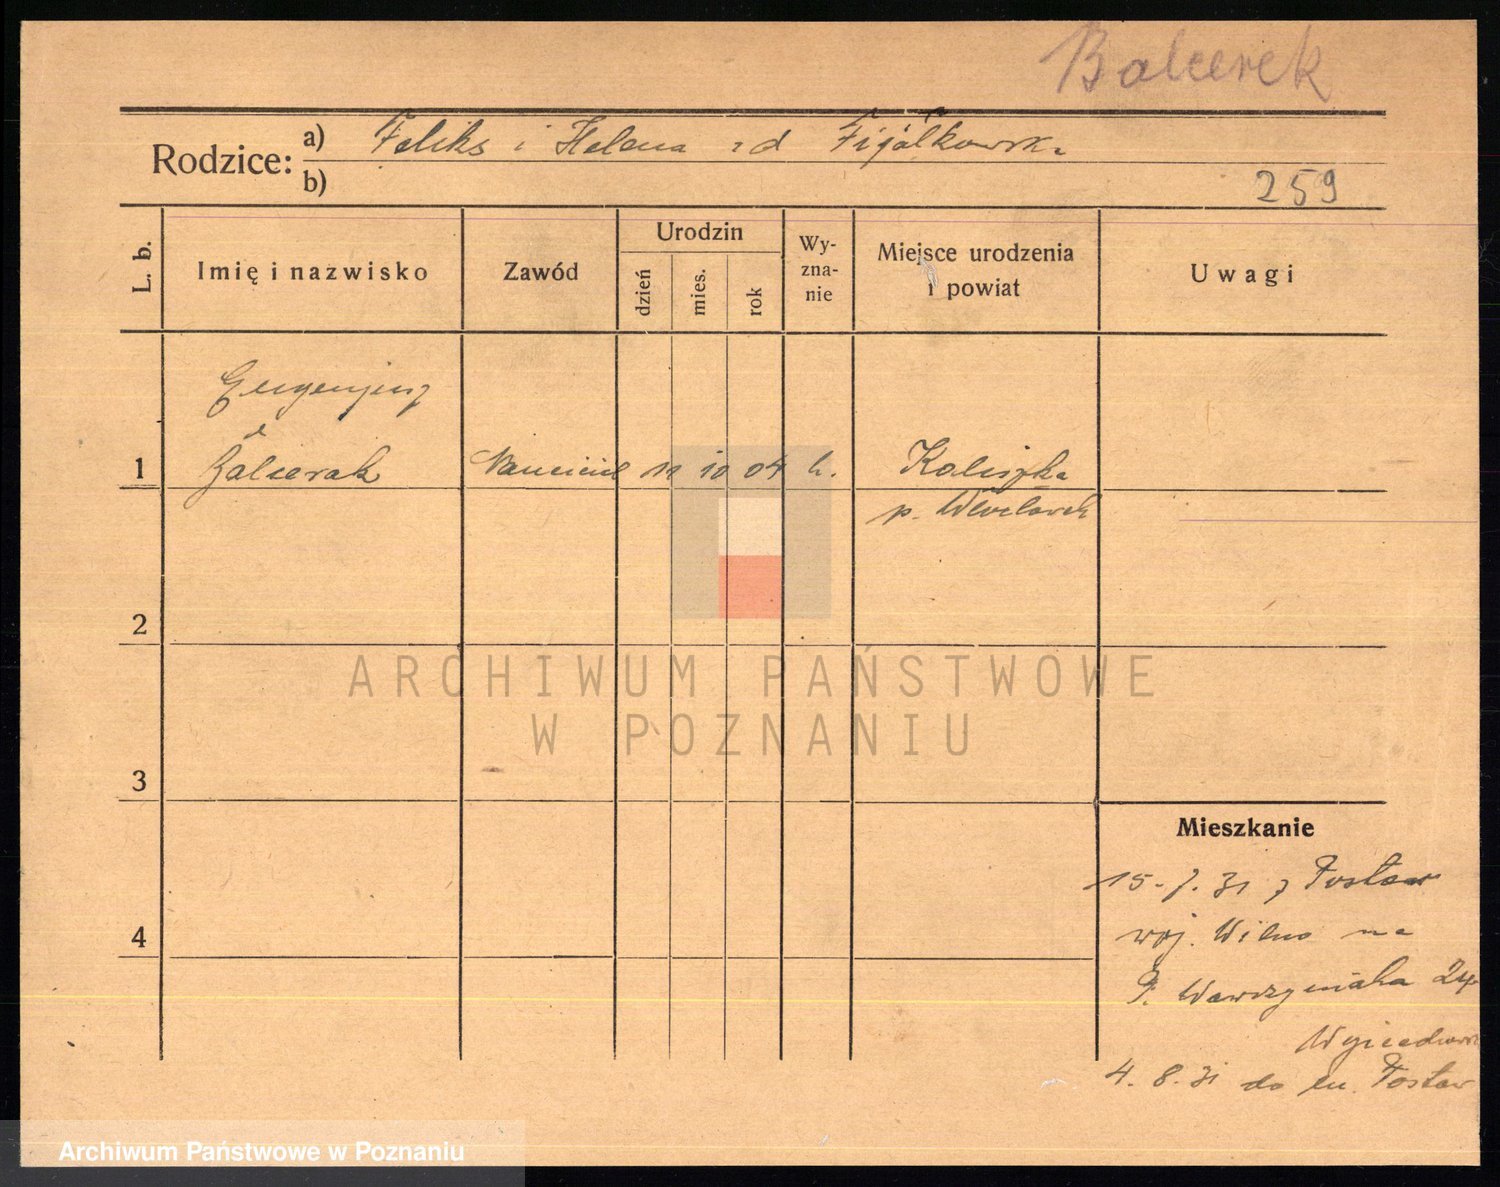 Balcerek
Rodzice: a) Feliks i Helena zd Fijałkowska
b)
259
L. b.
Imię i nazwisko
Zawód
Urodzin
dzień
mies.
rok
Wy-
zna-
nie
Miejsce urodzenia
i powiat
Uwagi
Eugenjusz
1 Balcerak Nauciciel 11 10 04 k. Kaliszka
p. Włocławek
2
ARCHIWUM PAŃSTWOWE
W POZNANIU
3
Mieszkanie
15-7.31 z Postaw
4 woj. Wilno na
P. Wawrzyniaka 24
4. 8. 31 do m. Postaw
Archiwum Państwowe w Poznaniu